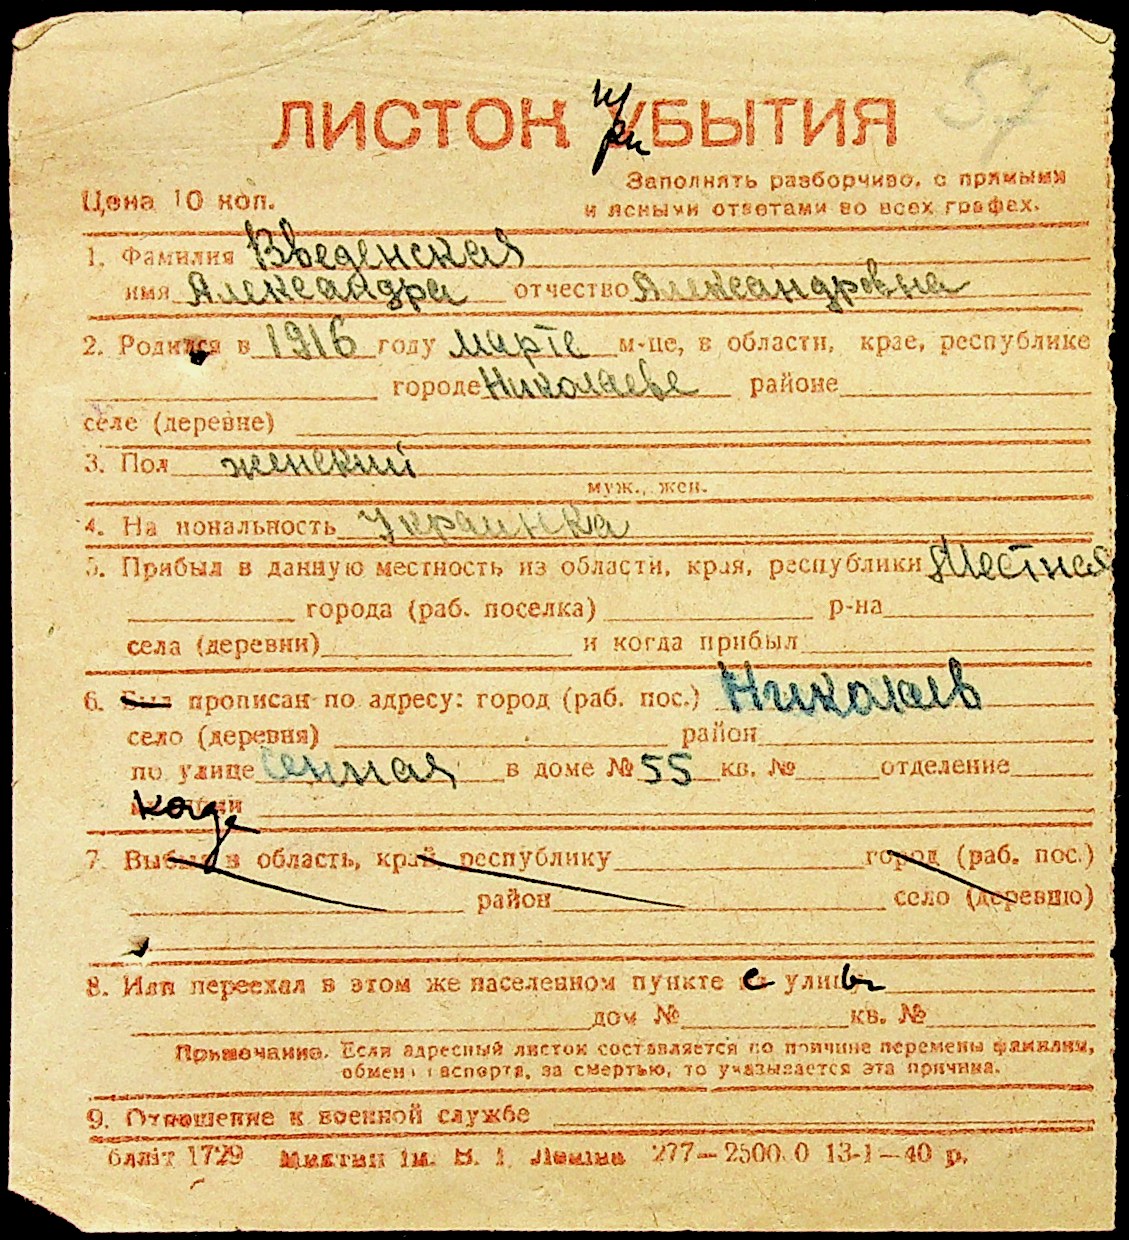 57
ЛИСТОК УБЫТИЯ
при
Цена 10 коп.
Заполнять разборчиво, с прямыми
и ясными ответами во всех графах.
1. Фамилия Введенская
имя Александра отчество Александровна
2. Родился в 1916 году марте м-це, в области, крае, республике
городе Николаеве районе
селе (деревне)
3. Пол женский
муж., жен.
4. На иональность Украинка
5. Прибыл в данную местность из области, края, республики Местная
города (раб. поселка) р-на
села (деревни) и когда прибыл
6. Был прописан по адресу: город (раб. пос.) Николаев
село (деревня) район
по улице Сенная в доме № 55 кв. № отделение
когда
7. Выбыл в область, край, республику город (раб. пос.)
район село (деревню)
8. Или переехал в этом же населенном пункте с улицы
дом № кв. №
Примечание. Если адресный листок составляется по причине перемены фамилии,
обмена паспорта, за смертью, то указывается эта причина.
9. Отношение к военной службе
блліт 1729 ім. В. І. Леніна 277—2500.0 13-1—40 р.